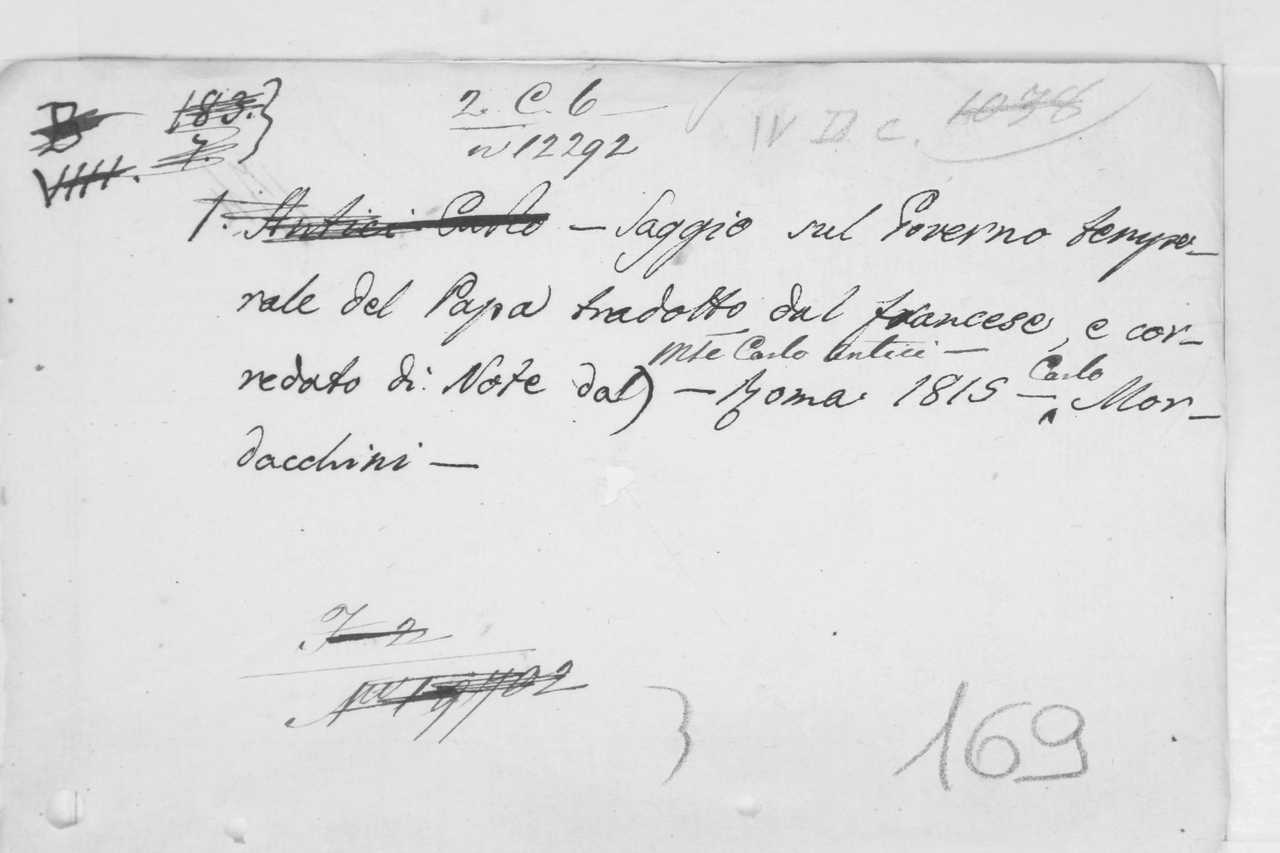 B 183. }
VIIII. 7.
2. C. 6
n 12292
IV D. C. 1038
1. Antici Carlo — Saggio sul Governo tempo-
rale del Papa tradotto dal francese, e cor-
redato di Note dal) mse Carlo Antici — Roma. 1815 — Carlo Mor-
dacchini —
169